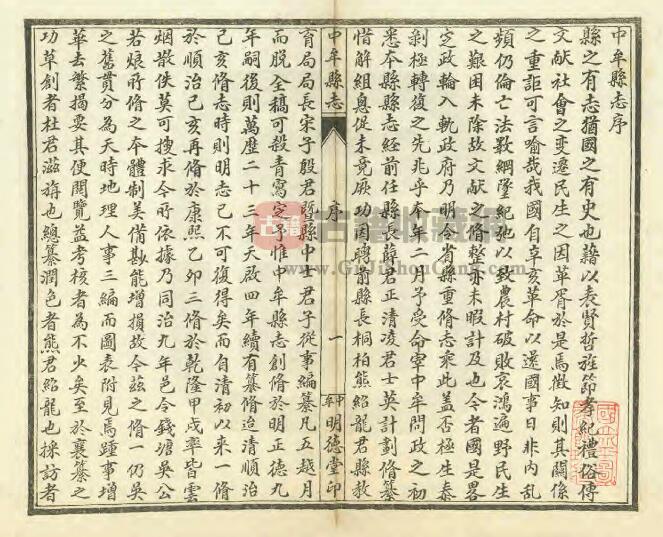 中牟縣志序
縣之有志猶國之有史也藉以表賢哲旌節孝紀禮俗傳
文献社會之变遷民生之因革胥於是焉徵知則其關係
之重詎可言喻哉我國自辛亥革命以還國事日非內乱
頻仍倫亡法斁綱墜紀弛以致農村破敗哀鴻遍野民生
之艱困未除故文献之脩整亦未暇計及也今者國是畧
定政輪入軌政府乃明令省縣重脩志乘此盖否極生泰
剝極轉復之先兆乎本年二月予受命宰中牟問政之初
悉本縣縣志經前任縣長薛君正清凌君士英計劃脩纂
惜解組息促未竟厥功因聘前縣長桐柏熊紹龍君縣教
中牟縣志
序
一
中牟明德堂印
育局局長宋子殷君暨縣中君子從事編纂凡五越月
而脱全稿可殺青寫定予惟中牟縣志創脩於明正德九
年嗣後則萬歷二十三年天啟四年續有纂脩迨清順治
己亥脩志時則明志已不可復得矣而自清初以来一脩
於順治己亥再脩於康熙乙卯三脩於乾隆甲戌率皆雲
烟散佚莫可搜求今所依據乃同治九年邑令錢塘吳公
若烺所脩之本體制美備尠能增損故今兹之脩一仍吳
之舊貫分為天時地理人事三編而圖表附見焉踵事增
華去繁揭要其便閱覽益考核者為不少矣至於襄纂之
功草創者杜君滋旃也總纂潤色者熊君紹龍也採訪者
古籍
古籍收藏網
www.GuJiShouCang.Com